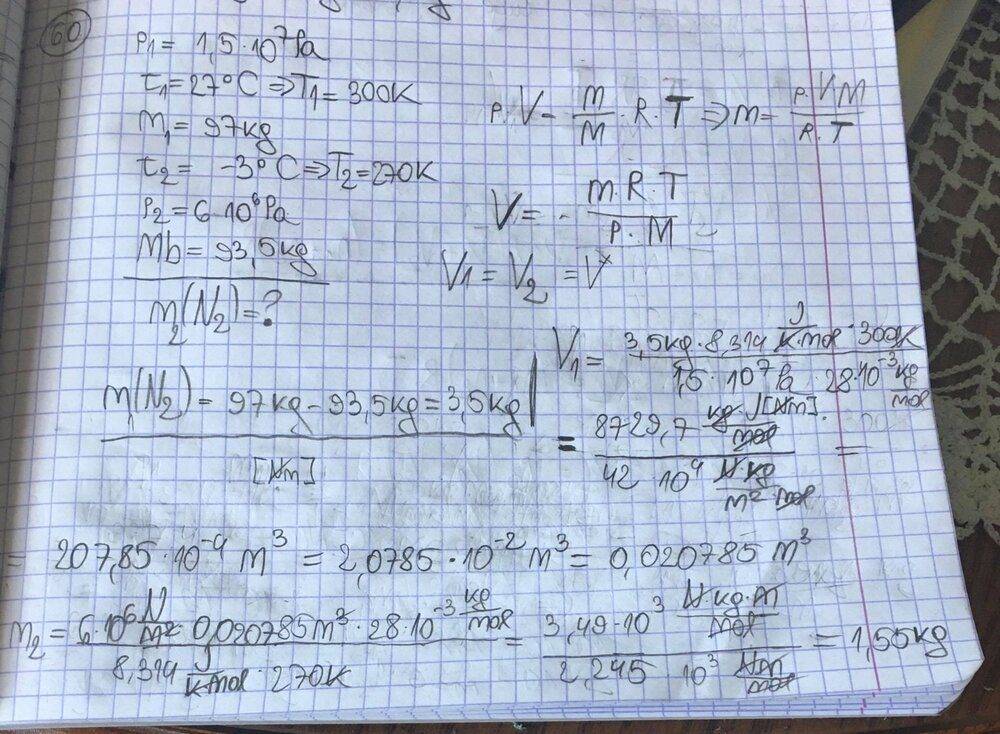 60
P1 = 1,5·10⁷Pa
t1 = 27°C ⇒ T1 = 300K
m1 = 97kg
t2 = -3°C ⇒ T2 = 270K
P2 = 6·10⁶Pa
Mb = 93,5kg
m2(N2) = ?
P·V = m/M · R·T ⇒ m = P·V·M / R·T
V = m·R·T / P·M
V1 = V2 = V
m1(N2) = 97kg - 93,5kg = 3,5kg
[Nm]
V1 = 3,5kg·8,314 J/K·mol · 300K / 1,5·10⁷Pa · 28·10⁻³ kg/mol
= 8729,7 kg·J[Nm]/mol / 42 10⁴ N·kg/m² mol =
= 207,85·10⁻⁴ m³ = 2,0785·10⁻² m³ = 0,020785 m³
m2 = 6·10⁶ N/m² · 0,020785m³·28·10⁻³ kg/mol / 8,314 J/K mol · 270K = 3,49·10³ N·kg·m/mol / 2,245 10³ Nm/mol = 1,55kg